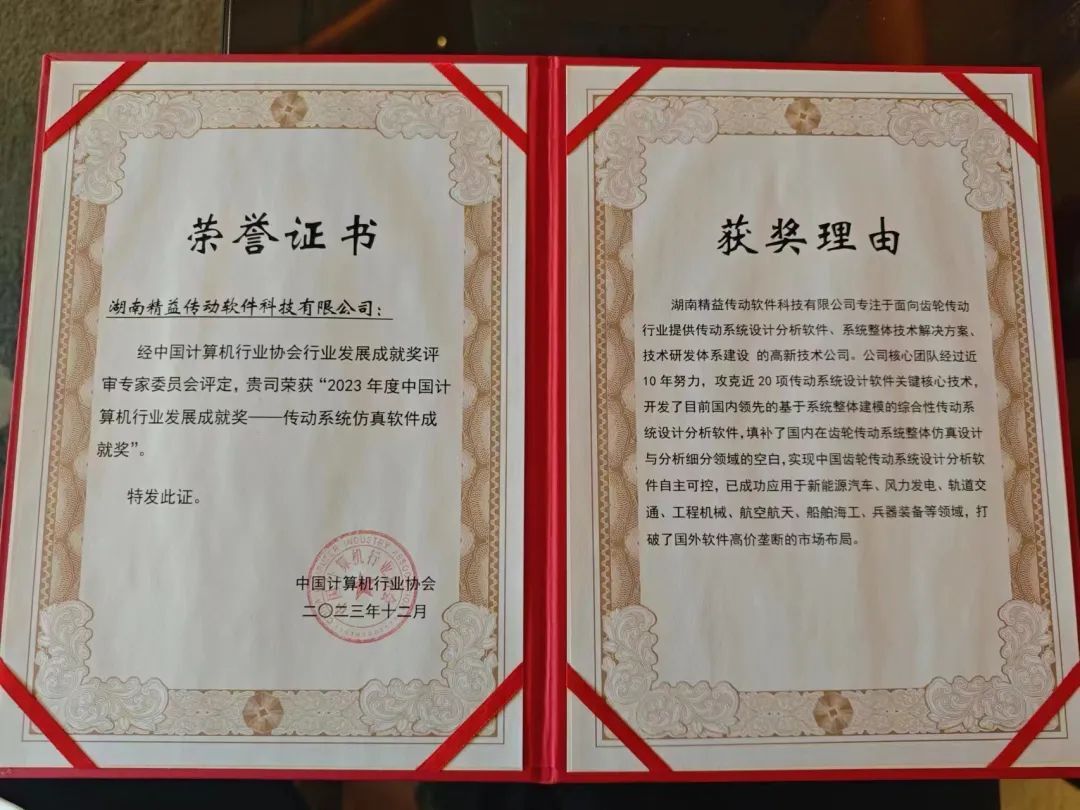 荣誉证书
湖南精益传动软件科技有限公司：
经中国计算机行业协会行业发展成就奖评
审专家委员会评定，贵司荣获“2023 年度中国计
算机行业发展成就奖——传动系统仿真软件成
就奖”。
特发此证。
中国计算机行业协会
二〇二三年十二月
获奖理由
湖南精益传动软件科技有限公司专注于面向齿轮传动
行业提供传动系统设计分析软件、系统整体技术解决方案、
技术研发体系建设 的高新技术公司。公司核心团队经过近
10 年努力，攻克近 20 项传动系统设计软件关键核心技术，
开发了目前国内领先的基于系统整体建模的综合性传动系
统设计分析软件，填补了国内在齿轮传动系统整体仿真设计
与分析细分领域的空白，实现中国齿轮传动系统设计分析软
件自主可控，已成功应用于新能源汽车、风力发电、轨道交
通、工程机械、航空航天、船舶海工、兵器装备等领域，打
破了国外软件高价垄断的市场布局。